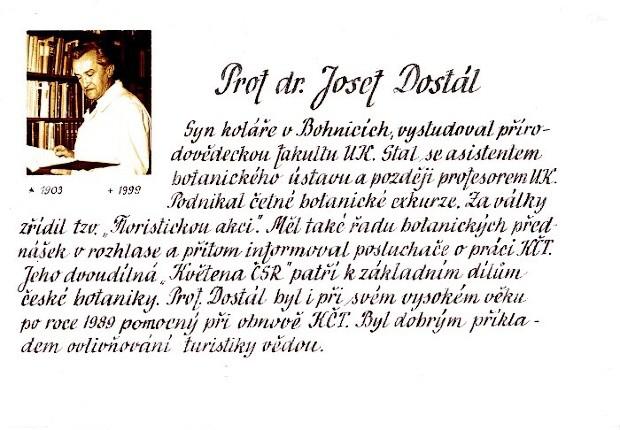 Prof dr. Josef Dostál
Syn koláře v Bohnicích, vystudoval příro-
dovědeckou fakultu UK. Stal se asistentem
botanického ústavu a později profesorem UK.
Podnikal četné botanické exkurze. Za války
zřídil tzv. „Floristickou akci". Měl také řadu botanických před-
nášek v rozhlase a přitom informoval posluchače o práci KČT.
Jeho dvoudílná „Květena ČSR" patří k základním dílům
české botaniky. Prof. Dostál byl i při svém vysokém věku
po roce 1989 pomocný při obnově KČT. Byl dobrým příkla-
dem ovlivňování turistiky vědou.
* 1903 + 1999